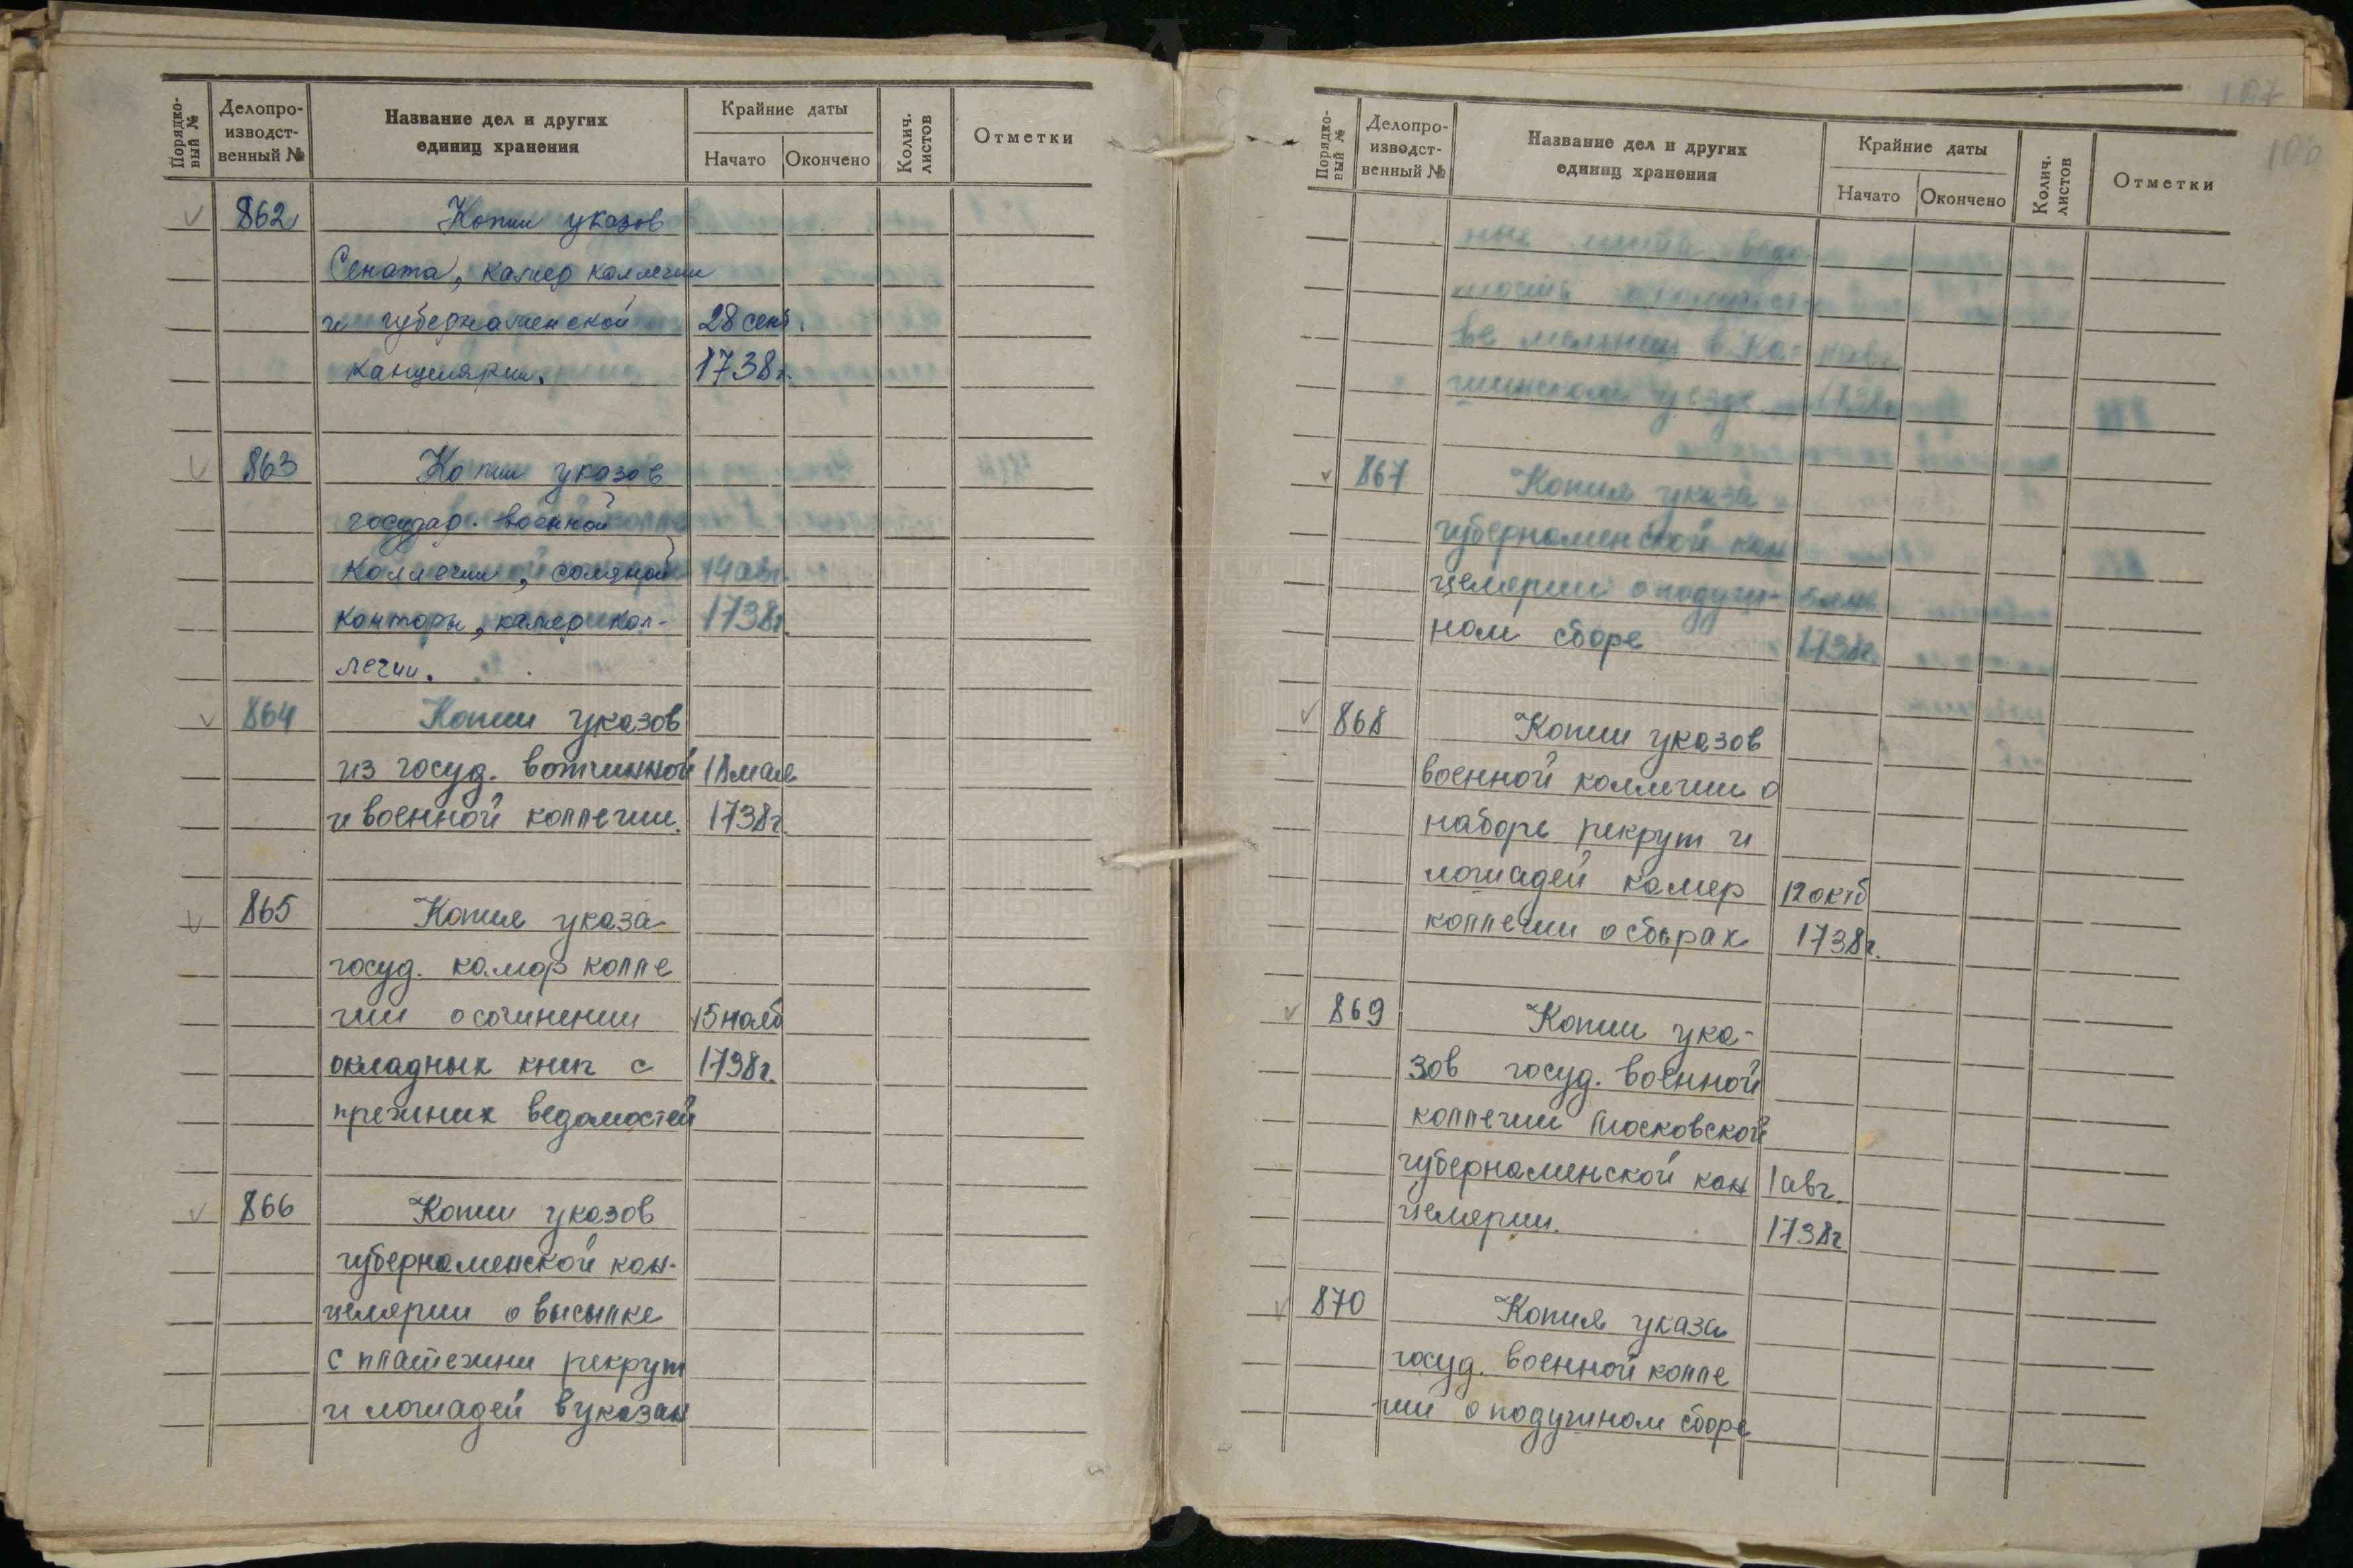 Порядко-
вый №
Делопро-
изводст-
венный №
Название дел и других
единиц хранения
Крайние даты
Начато
Окончено
Колич.
листов
Отметки
862 Копии указов
Сената, камер коллегии
и губернаменской 28 сент.
канцелярии. 1738г.
863 Копии указов
государ. военной
коллегии, соляной 14 авг.
конторы, камер кол- 1738г.
легии.
864 Копии указов
из госуд. вотчинной 18 мая
и военной коллегии. 1738г.
865 Копия указа
госуд. камор колле
гии о сочинении 15 нояб
окладных книг с 1738г.
прежних ведомостей
866 Копии указов
губернаменской кан-
целярии о высылке
с платежни рекрут
и лошадей в указан
107
106
Порядко-
вый №
Делопро-
изводст-
венный №
Название дел и других
единиц хранения
Крайние даты
Начато
Окончено
Колич.
листов
Отметки
ные места
ве мельниц в
уезде 1738г
867 Копия указа
губернаменской кан
целярии о подуш-
ном сборе 1738г.
868 Копии указов
военной коллегии о
наборе рекрут и
лошадей камер 12 октб
коллегии о сборах 1738г.
869 Копии ука-
зов госуд. военной
коллегии Московской
губернаменской кан 1 авг.
целярии. 1738г
870 Копия указа
госуд. военной колле
гии о подушном сборе